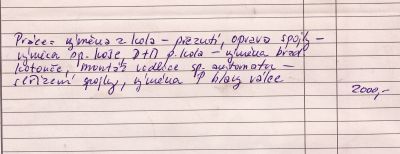 Práce: výměna z kola – přezutí, oprava spojky –
výměna sp. koše D+M p. kola – výměna brzd
kotouče, montáž vidlice sp. automatu –
seřízení spojky, výměna P brzy válce
2000,-